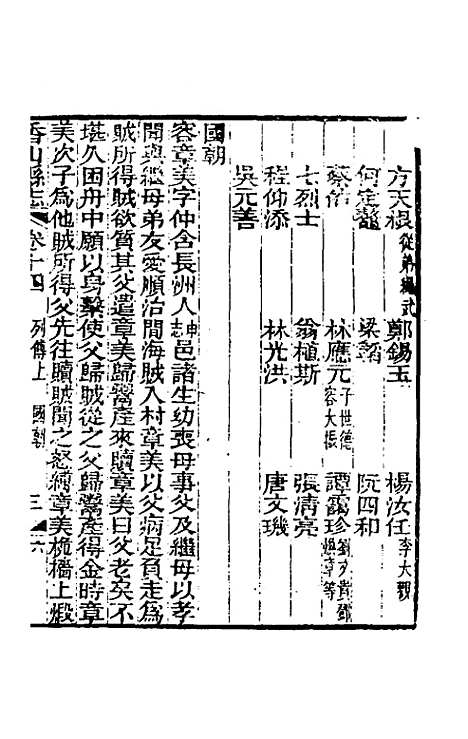 方天根從弟繩武 鄭錫玉 楊汝任李大觀
何定鼇 梁翰 阮四和
蔡佑 林應元子世德容大振 譚靄珍劉文貴鄧煥章等
七烈士 翁植斯 張淸亮
程仰添 林光洪 唐文璣
吳元善
國朝
容章美字仲含長洲人申志邑諸生幼喪母事父及繼母以孝
聞與繼母弟友愛順治間海賊入村章美以父病足負走爲
賊所得賊欲質其父遣章美歸鬻產來贖章美曰父老矣不
堪久困舟中願以身繫使父歸賊從之父歸鬻產得金時章
美次子爲他賊所得父先往贖賊聞之怒縛章美桅檣上煅
香山縣志 卷十四 列傳上 國朝 三 六